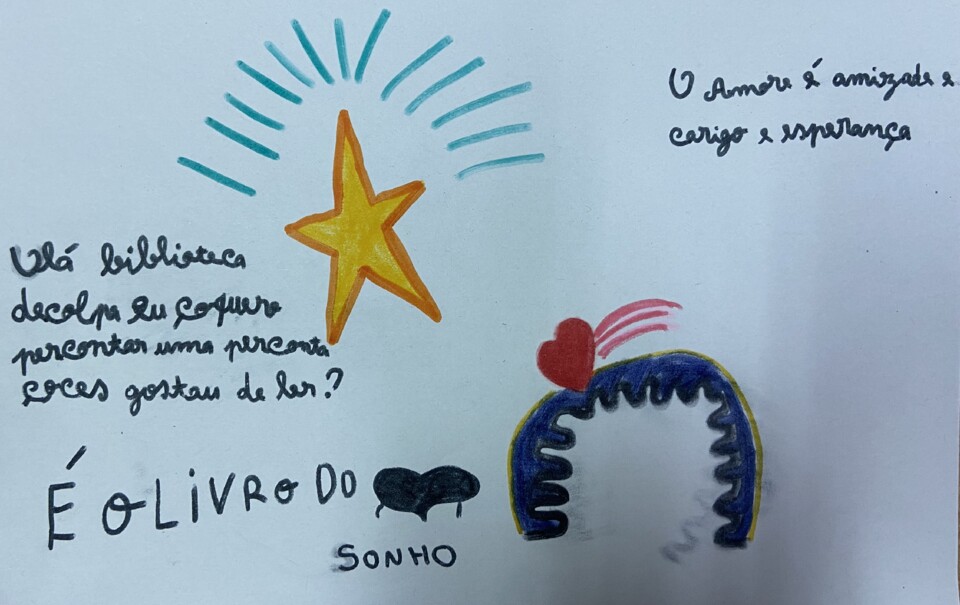 O Amore é amizade e
carigo e esperança
Olá biblioteca
decolpa eu çoquero
percontar uma perconta
çoces gostau de ler?
É O LiVRO DO
SONHO